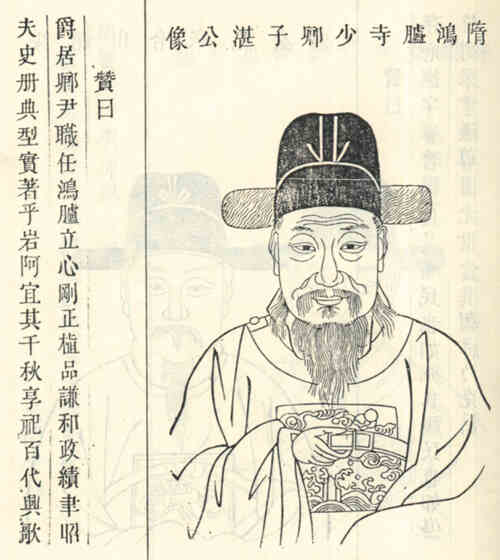 隋鴻臚寺少卿子湛公像
贊曰
爵居卿尹職任鴻臚立心剛正植品謙和政績聿昭
夫史册典型實著乎岩阿宜其千秋享祀百代興歌